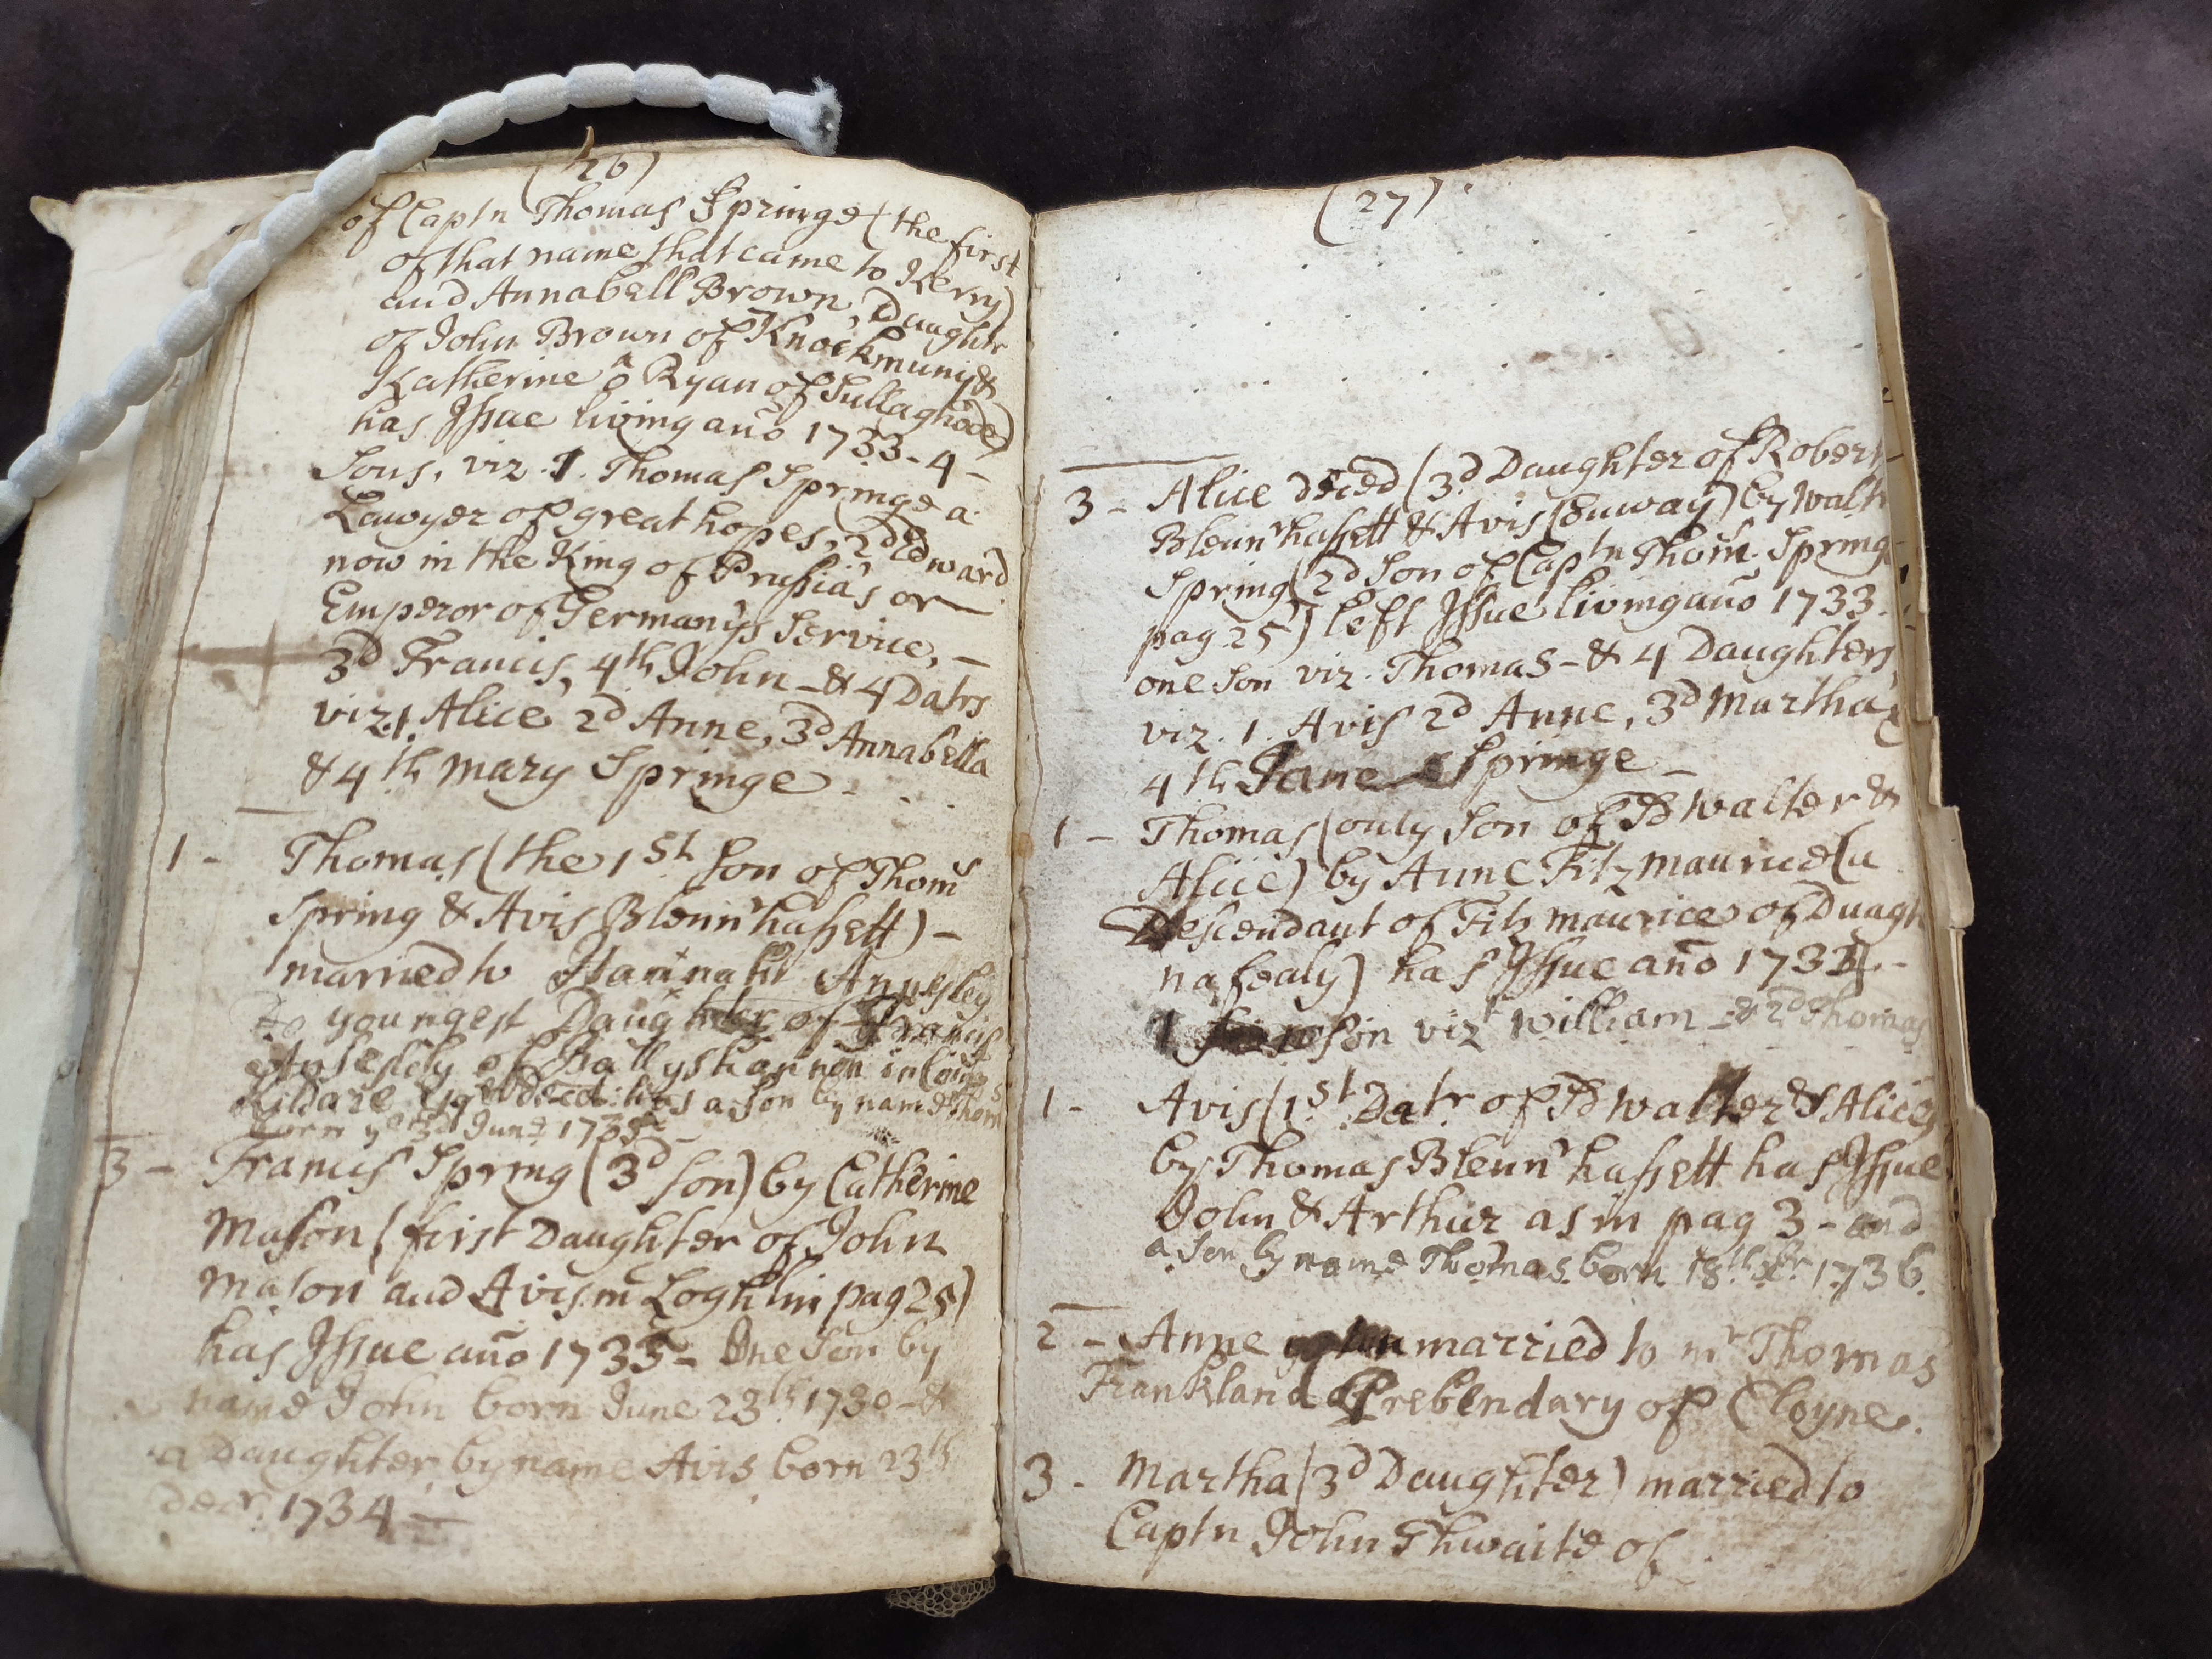 (26)
of Captn Thomas Springe (the first
of that name that came to Kerry)
and Annabell Brown, Daughtr
of John Brown of Knockmuny &
Katherine ô Ryan of Sullaghode)
has Issue living año 1733 - 4 -
Sons, viz. 1. Thomas Springe a
Lawyer of great hopes, 2d Edward
now in the King of Prussia's or
Emperor of Germany's Service, -
3d Francis, 4th John - & 4 Datrs
viz. 1. Alice 2d Anne, 3d Annabella
& 4th Mary Springe -
1 - Thomas (the 1st Son of Thoms
Spring & Avis Blennrhassett) -
married to Hannah Annesley
youngest Daughter of Francis
Annesley of Ballyshannon in County
Kildare Esqr decd: has a Son by name Thoms
born ye 3d June 1735
3 - Francis Spring (3d Son) by Catherine
Mason (first Daughter of John
Mason and Avis mc Loghlin pag 25)
has Issue año 1735 - One Son by
name John born June 23th 1730 - &
a Daughter by name Avis born 23th
Decr. 1734 -
(27)
3 - Alice deced (3d Daughter of Robert
Blennrhassett & Avis Conway) by Waltr
Spring (2d Son of Captn Thoms Spring
pag 25) left Issue living año 1733.
one Son viz. Thomas - & 4 Daughters
viz. 1. Avis 2d Anne, 3d Martha &
4th Jane Springe -
1 - Thomas (only Son of Sd Walter &
Alice) by Anne Fitzmaurice (a
Descendant of Fitzmaurice of Duagh
nafealy) has Issue año 1733 -
1 Son vizt William - & 2d Thomas
1 - Avis (1st Datr of Sd Walter & Alice)
by Thomas Blennrhassett has Issue
John & Arthur as in pag 3 - and
a Son by name Thomas born 18th 1736.
2 - Anne married to mr Thomas
Frankland Prebendary of Cloyne.
3 - Martha (3d Daughter) married to
Captn John Thwaite of